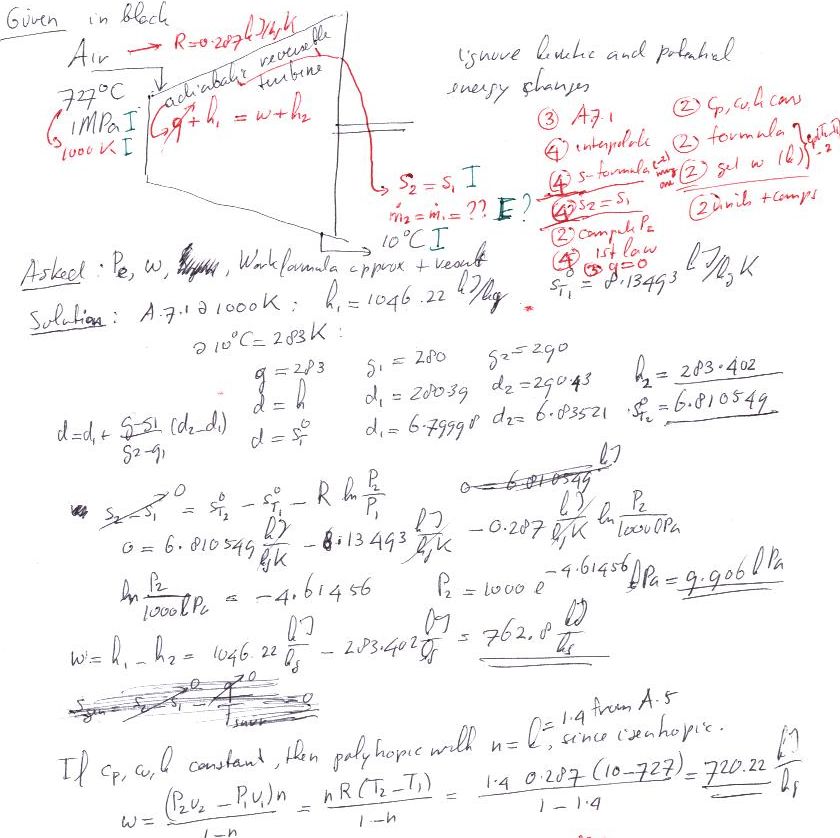 Given in black
Air → R=0.287 kJ/kg K
adiabatic reversible
turbine
727°C
1MPa I
1000 K I
q + h₁ = w + h₂
ignore kinetic and potential
energy changes
③ A7.1
④ interpolate
④ s-formula
④ s₂ = s₁
② compute P₂
④ 1st law
③ q=0
② cp, cv, k cons
② formula
② get w (k)
② units + comps
s₂ = s₁ I
ṁ₂ = ṁ₁ = ?? E?
10°C I
Asked : Pe, w, Work formula approx + result
Solution: A.7.1 @ 1000K : h₁ = 1046.22 kJ/kg s°T₁ = 8.13493 kJ/kg K
@ 10°C = 283K :
g = 283 g₁ = 280 g₂ = 290
d = h d₁ = 280.39 d₂ = 290.43 h₂ = 283.402
d = d₁ + (g-g₁)/(g₂-g₁) (d₂-d₁) d = s°T d₁ = 6.79998 d₂ = 6.83521 s°T₂ = 6.810549
0 = 6.810549 kJ
s₂ - s₁ 0 = s°T₂ - s°T₁ - R ln P₂/P₁
0 = 6.810549 kJ/kgK - 8.13493 kJ/kgK - 0.287 kJ/kgK ln P₂/1000kPa
ln P₂/1000kPa = -4.61456 P₂ = 1000 e^-4.61456 kPa = 9.906 kPa
w = h₁ - h₂ = 1046.22 kJ/kg - 283.402 kJ/kg = 762.8 kJ/kg
If cp, cv, k constant, then polytropic with n = k = 1.4 from A.5, since isentropic.
w = (P₂v₂ - P₁v₁)n/1-n = nR(T₂-T₁)/1-n = 1.4 0.287 (10-727)/1-1.4 = 720.22 kJ/kg